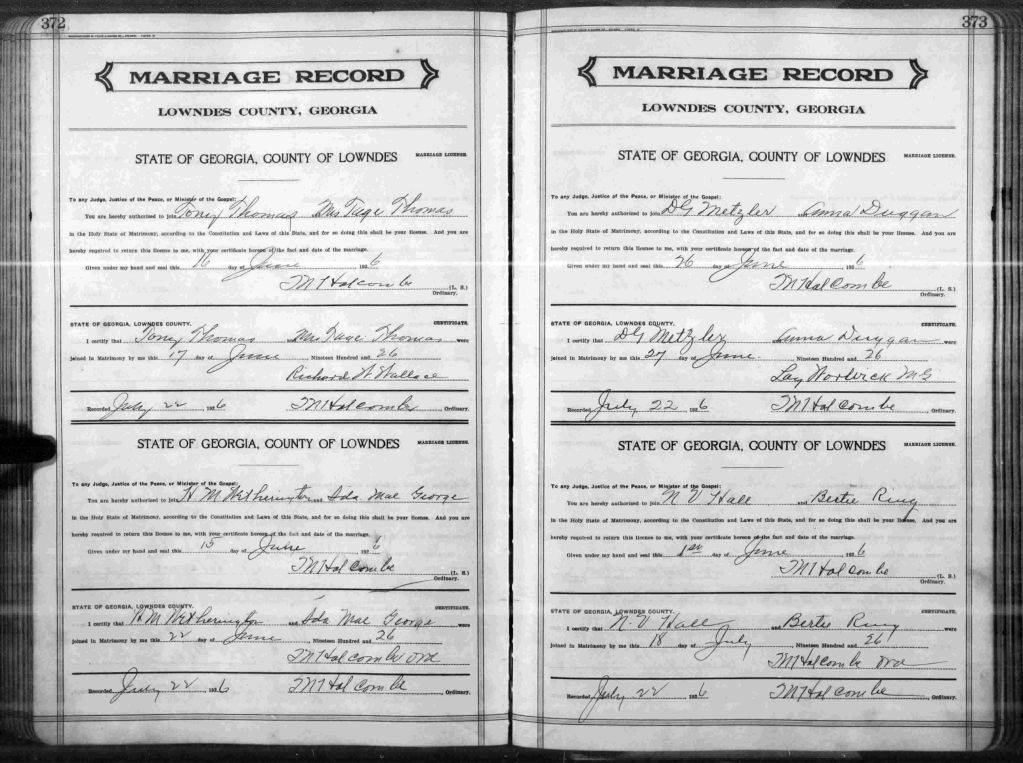 372
MARRIAGE RECORD
LOWNDES COUNTY, GEORGIA
STATE OF GEORGIA, COUNTY OF LOWNDES MARRIAGE LICENSE.
To any Judge, Justice of the Peace, or Minister of the Gospel:
You are hereby authorized to join Tony Thomas Mrs Tage Thomas
in the Holy State of Matrimony, according to the Constitution and Laws of this State, and for so doing this shall be your license. And you are
hereby required to return this license to me, with your certificate hereon of the fact and date of the marriage.
Given under my hand and seal this 16 day of June 1926
T M Holcombe (L. S.)
Ordinary.
STATE OF GEORGIA, LOWNDES COUNTY. CERTIFICATE.
I certify that Tony Thomas and Mrs Tage Thomas were
joined in Matrimony by me this 17 day of June Nineteen Hundred and 26
Richard W Wallace
Recorded July 22 1926 T M Holcombe Ordinary.
STATE OF GEORGIA, COUNTY OF LOWNDES MARRIAGE LICENSE.
To any Judge, Justice of the Peace, or Minister of the Gospel:
You are hereby authorized to join H M Wetherington and Ida Mae George
in the Holy State of Matrimony, according to the Constitution and Laws of this State, and for so doing this shall be your license. And you are
hereby required to return this license to me, with your certificate hereon of the fact and date of the marriage.
Given under my hand and seal this 15 day of June 1926
T M Holcombe (L. S.)
Ordinary.
STATE OF GEORGIA, LOWNDES COUNTY. CERTIFICATE.
I certify that H M Wetherington and Ida Mae George were
joined in Matrimony by me this 22 day of June, Nineteen Hundred and 26
T M Holcombe Ord
Recorded July 22 1926 T M Holcombe Ordinary.
373
MARRIAGE RECORD
LOWNDES COUNTY, GEORGIA
STATE OF GEORGIA, COUNTY OF LOWNDES MARRIAGE LICENSE.
To any Judge, Justice of the Peace, or Minister of the Gospel:
You are hereby authorized to join D G Metzler Anna Duggan
in the Holy State of Matrimony, according to the Constitution and Laws of this State, and for so doing this shall be your license. And you are
hereby required to return this license to me, with your certificate hereon of the fact and date of the marriage.
Given under my hand and seal this 26 day of June 1926
T M Holcombe (L. S.)
Ordinary.
STATE OF GEORGIA, LOWNDES COUNTY. CERTIFICATE.
I certify that D G Metzler Anna Duggan were
joined in Matrimony by me this 27 day of June Nineteen Hundred and 26
M G
Recorded July 22, 1926 T M Holcombe Ordinary.
STATE OF GEORGIA, COUNTY OF LOWNDES MARRIAGE LICENSE.
To any Judge, Justice of the Peace, or Minister of the Gospel:
You are hereby authorized to join N V Hall and Bertie Ring
in the Holy State of Matrimony, according to the Constitution and Laws of this State, and for so doing this shall be your license. And you are
hereby required to return this license to me, with your certificate hereon of the fact and date of the marriage.
Given under my hand and seal this 1st day of June 1926
T M Holcombe (L. S.)
Ordinary.
STATE OF GEORGIA, LOWNDES COUNTY. CERTIFICATE.
I certify that N. V Hall and Bertie Ring were
joined in Matrimony by me this 18 day of July, Nineteen Hundred and 26
T M Holcombe Ord
Recorded July 22 1926 T M Holcombe Ordinary.